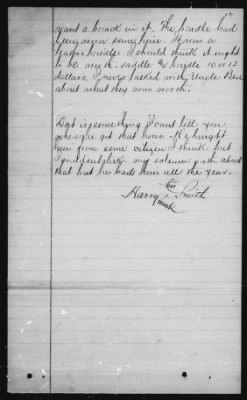 want a break in it. The bridle had
been worn some time. It was a
Yankee bridle. I should think it ought
to be worth, saddle & bridle 10 or 12
dollars. I never talked with Uncle Ben
about what they were worth.
That is something I cant tell you
where he got that horse. He bought
him from some citizen I think but
I
that but he had him all the year.
his
Harry X Smith
mark